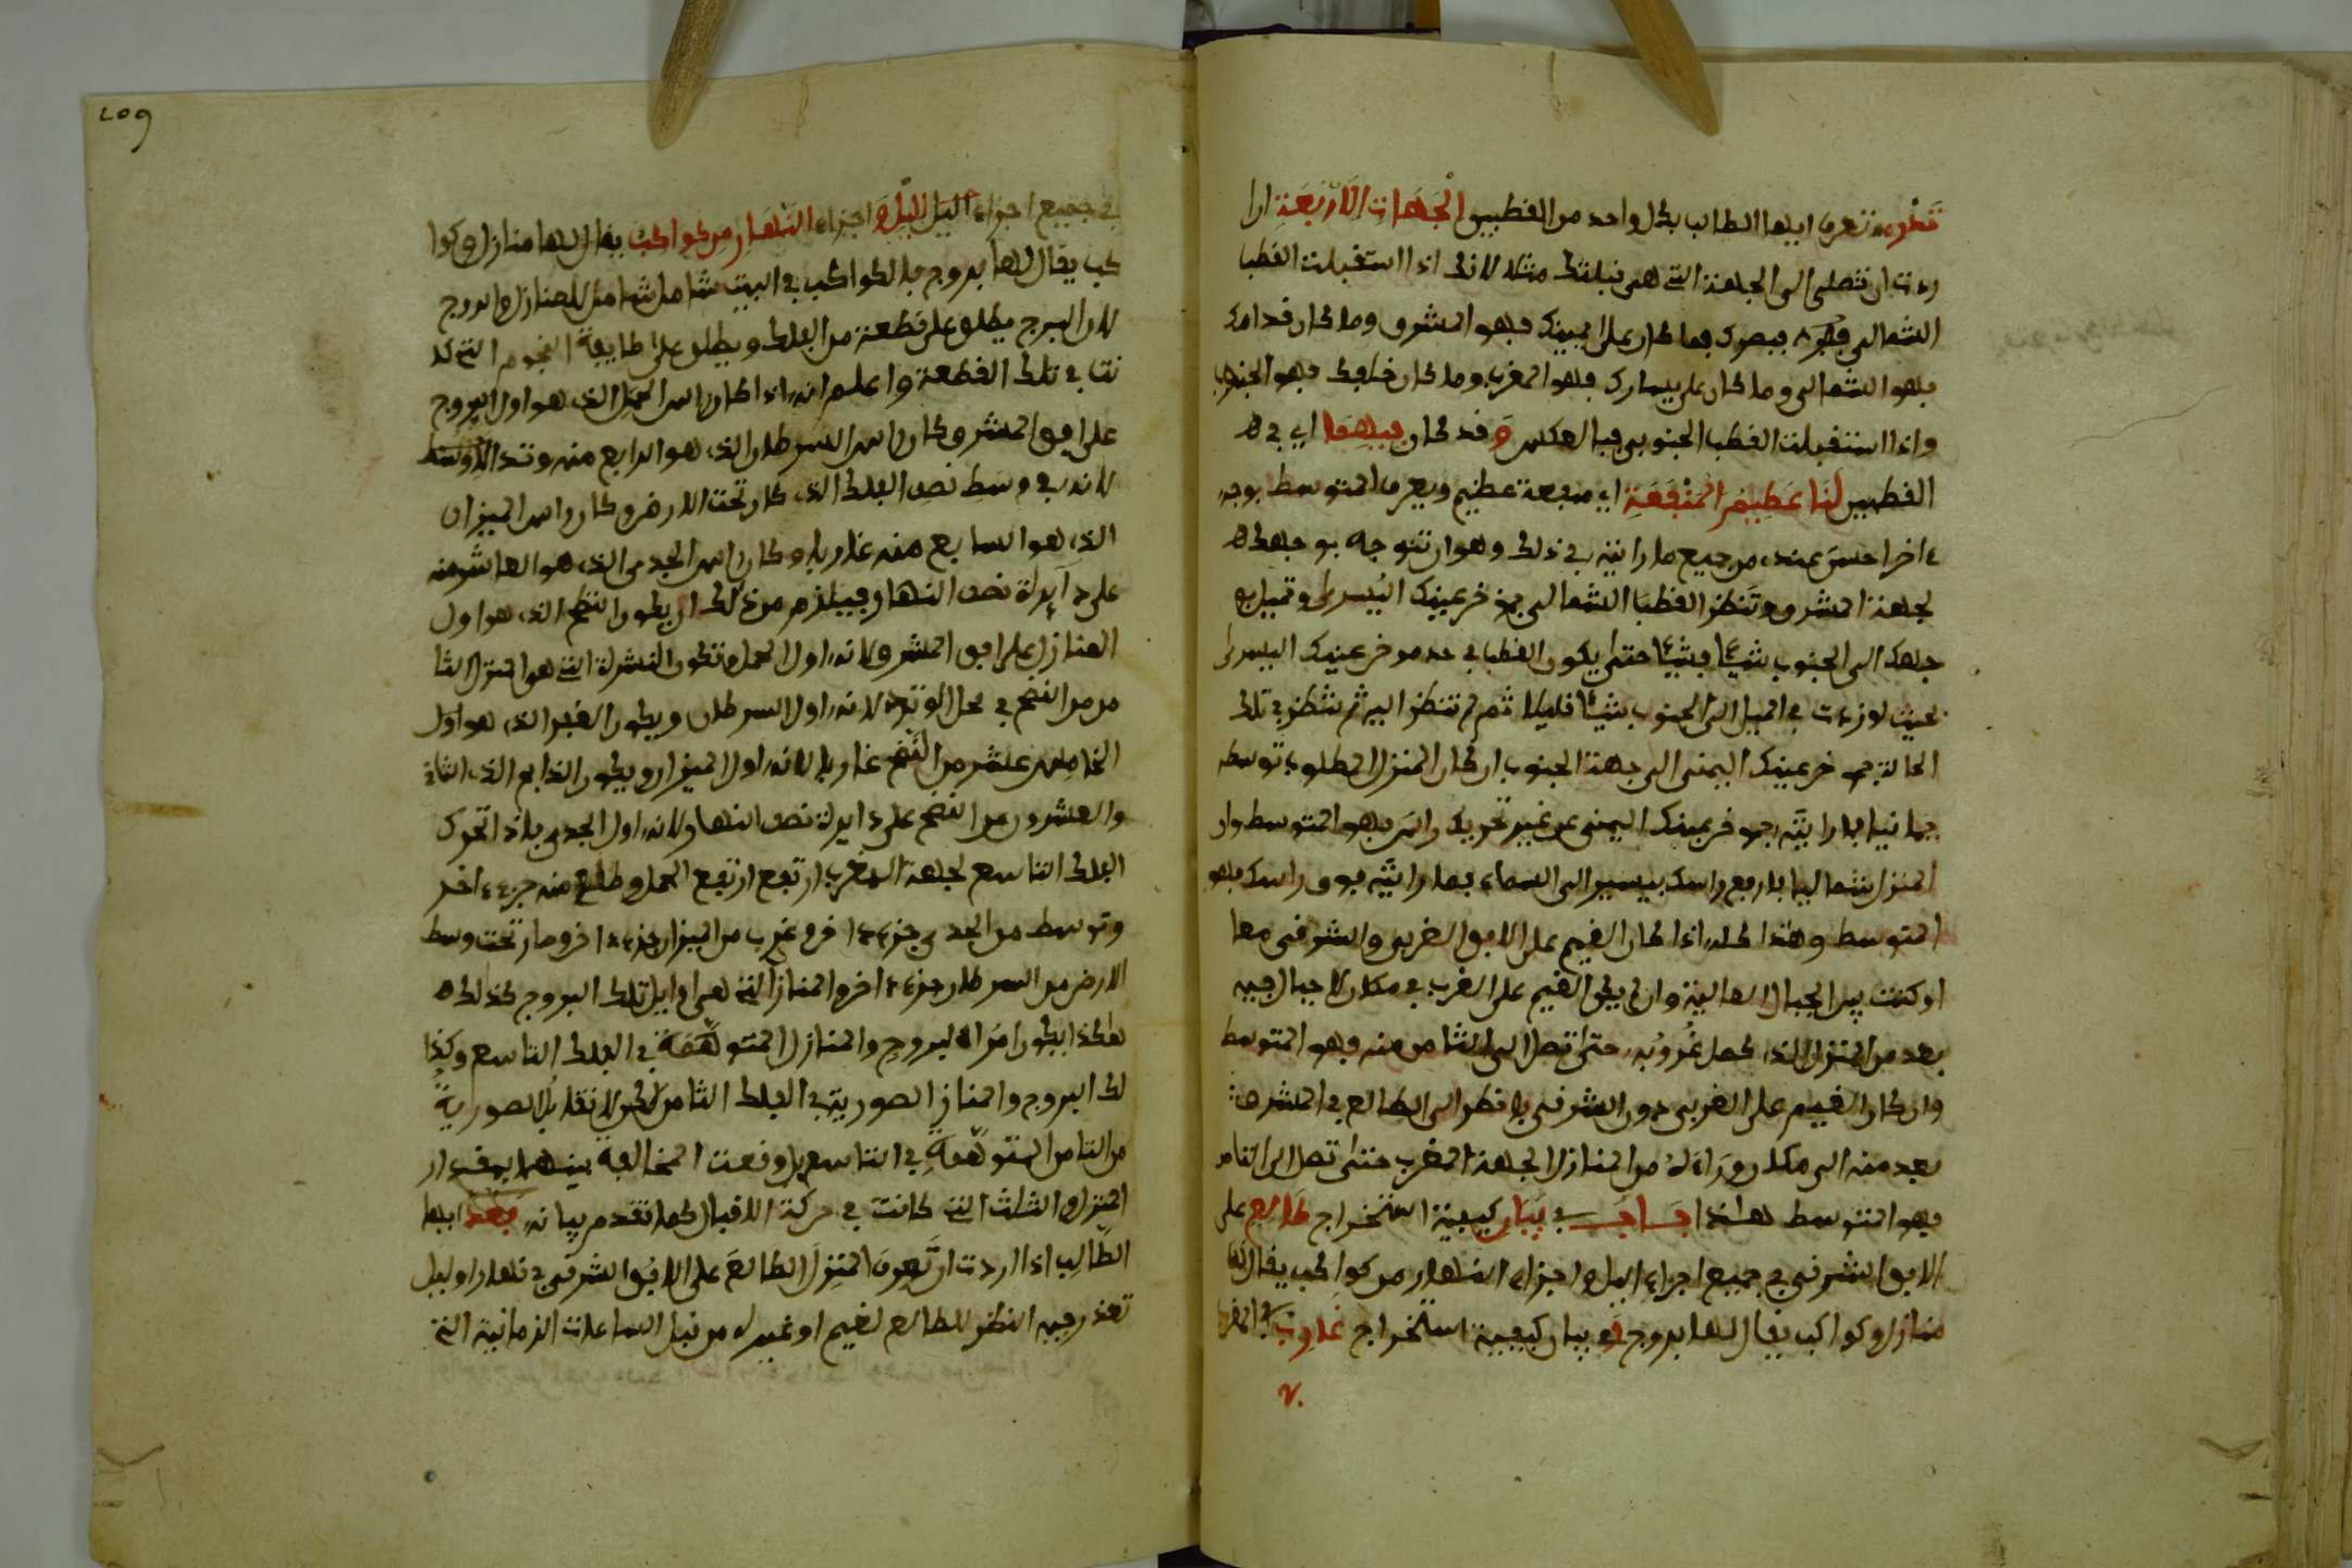 تعرف ايها الطالب بكل واحد من القطبين الجهات الاربعة ان ا
ردت ان تصلي الى الجهة التي هي قبلتك مثلا لانك اذا استقبلت القطب
الشمالي ببصرك فما كان على يمينك فهو المشرق وما كان قدامك
فهو الشمالي وما كان على يسارك فهو المغرب وما كان خلفك فهو الجنوب
واذا استقبلت القطب الجنوبي فبالعكس وقد كان فيهما اي في
القطبين لنا عظيم المنفعة اي منفعة عظيم ويعرف المتوسط بوجه
ءاخر احسن عندي من جميع ما رايته في ذلك وهو ان تتوجه بوجهك
لجهة المشرق وتنظر القطب الشمالي بمؤخر عينك اليسرى وتميل بو
جهك الى الجنوب شيئا فشيئا حتى يكون القطب في حد موخر عينك اليسرى
بحيث لو زدت في الميل الى الجنوب شيئا قليلا ثم لم تنظر اليه ثم تنظر في تلك
الحالة بموخر عينك اليمنى الى جهة الجنوب ان كان المنزل المطلوب توسطه
يمانيا فما رايته بموخر عينك اليمنى من غير تحريك راسك فهو المتوسط وان
المنزل شماليا فارفع راسك بيسير الى السماء فما رايته فوق راسك فهو
المتوسط وهذا كله اذا كان الغيم على الافق الغربي والشرقي معا
او كنت بين الجبال العالية وان لم يكن الغيم على الغرب في مكان لا جبال فيه
بعد من المنزل الذي كمل غروبه حتى تصل الى الثامن منه فهو المتوسط
وان كان الغيم على الغربي دون الشرقي فانظر الى الطالع في المشرق
بعد منه الى مكان وراءه من المنازل لجهة المغرب حتى تصل الى الثامن
فهو المتوسط هذا باب في بيان كيفية استخراج طالع على
الافق الشرقي في جميع اجزاء اليل واجزاء النهار من كواكب يقال لها
منازل وكواكب يقال لها بروج وفي بيان كيفية استخراج غارب في المغرب
209
في جميع اجزاء اليل واجزاء النهار من كواكب يقال لها منازل وكوا
كب يقال لها بروج فالكواكب في البيت شامل للمنازل والبروج
لان البرج يطلق على قطعة من الفلك ويطلق على طايفة النجوم التي كا
نت في تلك القطعة واعلم انه اذا كان راس الحمل الذي هو اول البروج
على افق المشرق كان راس السرطان الذي هو الرابع منه وتد الاوسط
لانه في وسط نصف الفلك الذي كان تحت الارض وكان راس الميزان
الذي هو السابع منه غاربا وكان راس الجدي الذي هو العاشر منه
على دايرة نصف النهار فيلزم من ذلك ان يكون النطح الذي هو اول
المنازل على افق المشرق لانه اول الحمل وتكون النثرة التي هو المنزل الثا
من من النطح في محل الوتد لانه اول السرطان ويكون الغفر الذي هو اول
الخامس عشر من النطح غاربا لانه اول الميزان ويكون الذابح الذي الثاني
والعشرون من النطح على دايرة نصف النهار لانه اول الجدي فاذا تحرك
الفلك التاسع لجهة المغرب ارتفع الحمل وطلع منه جزء ءاخر
وتوسط من الجدي جزء ءاخر وغرب من الميزان جزء ءاخر وصار تحت وسط
الارض من السرطان جزء ءاخر والمنازل التي هي اوايل تلك البروج كذلك
هكذا يكون امر البروج والمنازل المتوهمة في الفلك التاسع وكذا
لك البروج والمنازل الصورية في الفلك الثامن لكن لا تقابل الصورية
من الثامن المتوهمة في التاسع بل وقعت المخالفة بينهما بمقدار
المنزل والثلث التي كانت في حركة الاقبال كما تقدم بيانه ايها
الطالب اذا اردت ان تعرف المنزل الطالع على الافق الشرقي في نهار او ليل
تعذر فيه النظر للطالع لغيم او غيره من قبل الساعات الزمانية التي